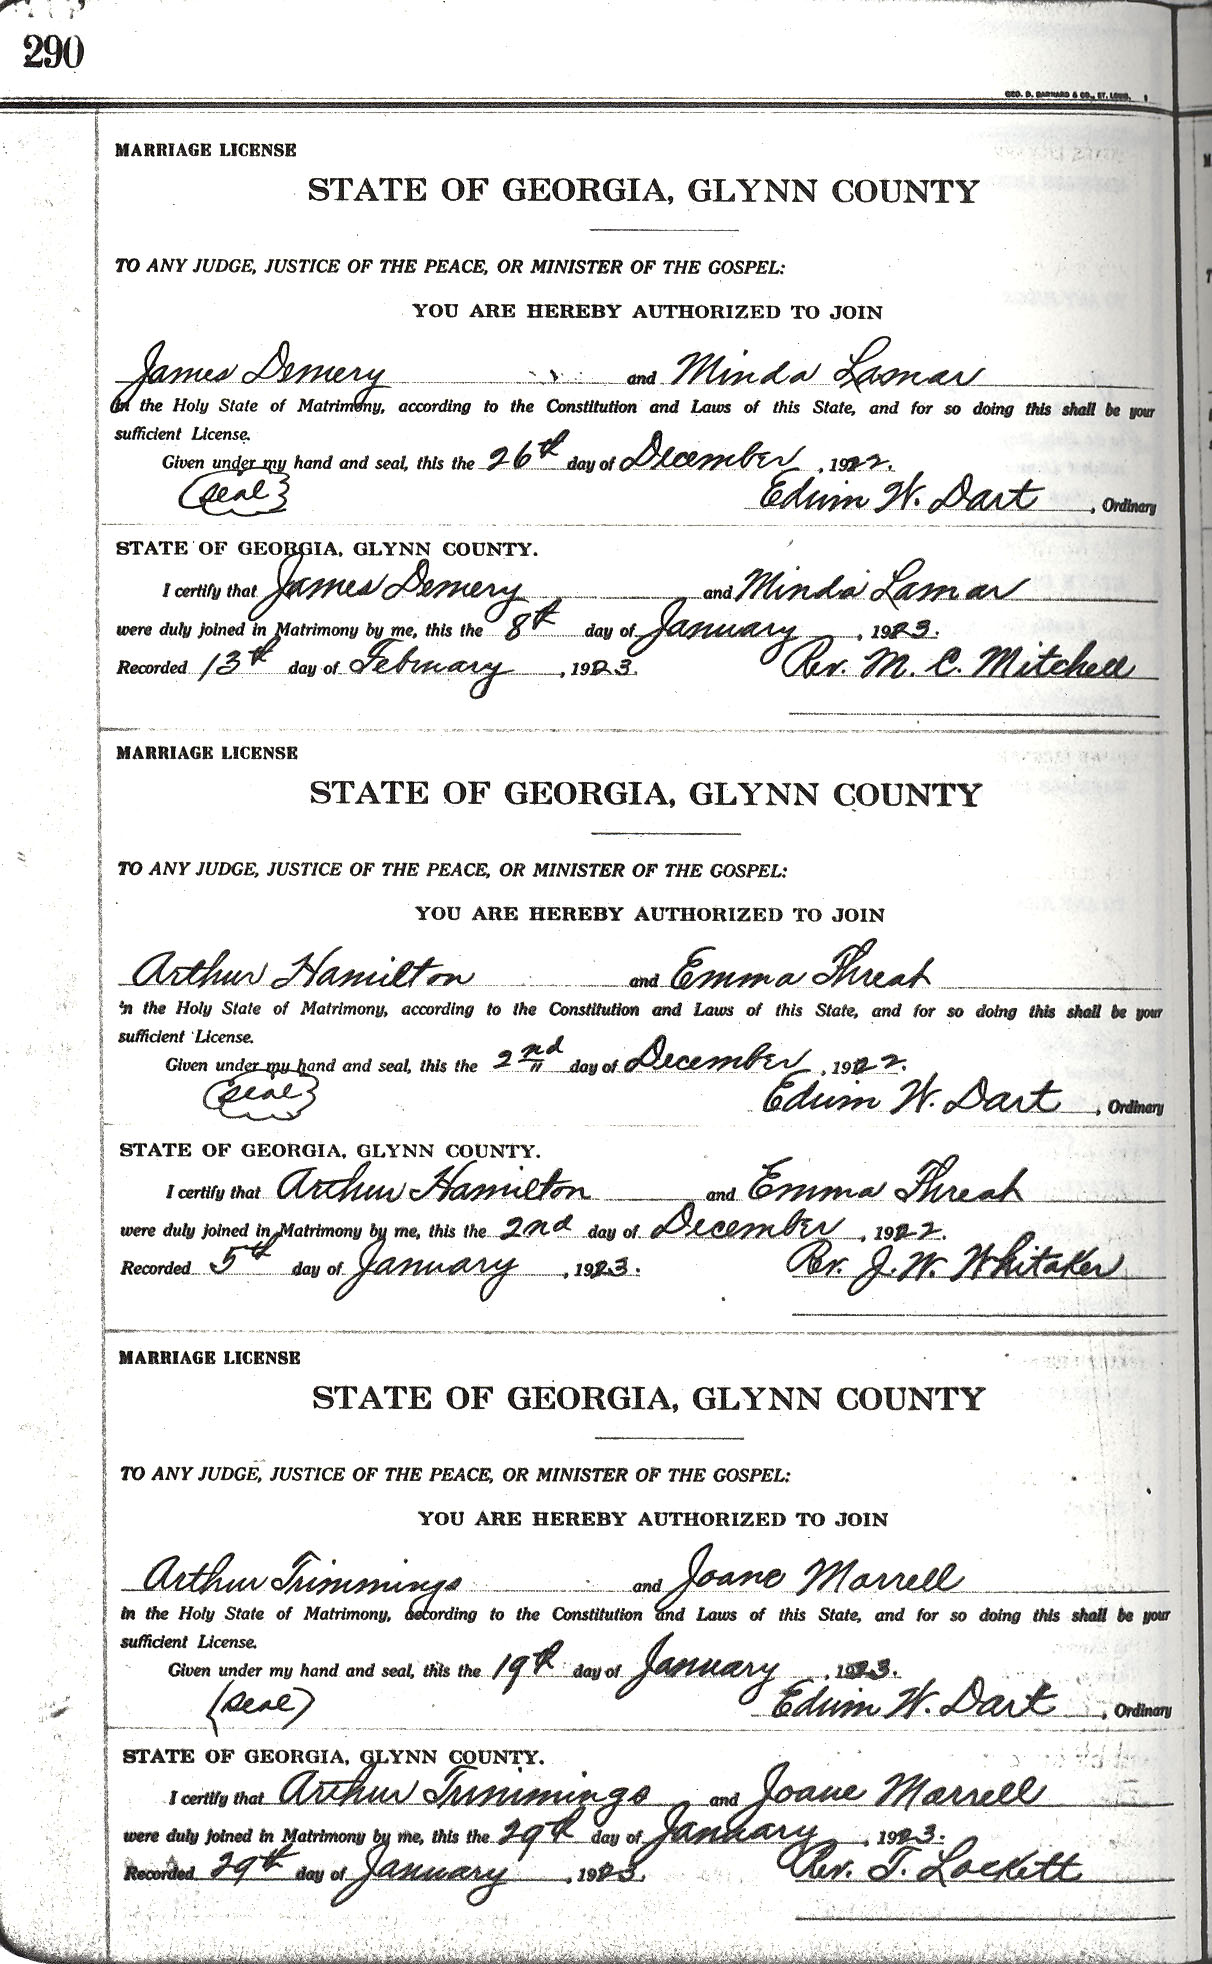 290
GEO. D. BARNARD & CO., ST. LOUIS.
MARRIAGE LICENSE
STATE OF GEORGIA, GLYNN COUNTY
TO ANY JUDGE, JUSTICE OF THE PEACE, OR MINISTER OF THE GOSPEL:
YOU ARE HEREBY AUTHORIZED TO JOIN
James Demery and Minda Lamar
in the Holy State of Matrimony, according to the Constitution and Laws of this State, and for so doing this shall be your
sufficient License.
Given under my hand and seal, this the 26th day of December, 1922.
(Seal) Edwin W. Dart, Ordinary
STATE OF GEORGIA, GLYNN COUNTY.
I certify that James Demery and Minda Lamar
were duly joined in Matrimony by me, this the 8th day of January, 1923.
Recorded 13th day of February, 1923. Rev. M. C. Mitchell
MARRIAGE LICENSE
STATE OF GEORGIA, GLYNN COUNTY
TO ANY JUDGE, JUSTICE OF THE PEACE, OR MINISTER OF THE GOSPEL:
YOU ARE HEREBY AUTHORIZED TO JOIN
Arthur Hamilton and Emma Threat
in the Holy State of Matrimony, according to the Constitution and Laws of this State, and for so doing this shall be your
sufficient License.
Given under my hand and seal, this the 2nd day of December, 1922.
(Seal) Edwin W. Dart, Ordinary
STATE OF GEORGIA, GLYNN COUNTY.
I certify that Arthur Hamilton and Emma Threat
were duly joined in Matrimony by me, this the 2nd day of December, 1922.
Recorded 5th day of January, 1923. Rev. J. W. Whitaker
MARRIAGE LICENSE
STATE OF GEORGIA, GLYNN COUNTY
TO ANY JUDGE, JUSTICE OF THE PEACE, OR MINISTER OF THE GOSPEL:
YOU ARE HEREBY AUTHORIZED TO JOIN
Arthur Trimmings and Joane Morrell
in the Holy State of Matrimony, according to the Constitution and Laws of this State, and for so doing this shall be your
sufficient License.
Given under my hand and seal, this the 19th day of January, 1923.
(Seal) Edwin W. Dart, Ordinary
STATE OF GEORGIA, GLYNN COUNTY.
I certify that Arthur Trimmings and Joane Morrell
were duly joined in Matrimony by me, this the 29th day of January, 1923.
Recorded 29th day of January, 1923. Rev. T. Lockett